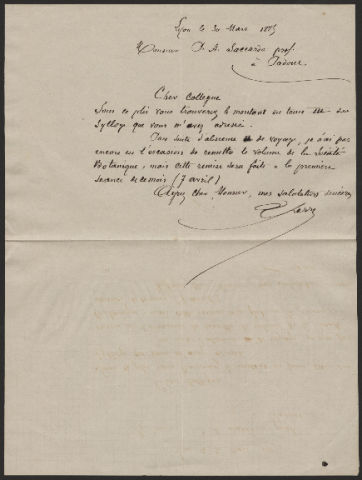 Lyon le 30 Mars 1885
Monsieur P. A. Saccardo prof.
à Padoue
Cher collègue
Sous ce pli vous trouverez le montant du tome III du
Sylloge que vous m'avez adressé.
Par suite d'absence de voyage, je n'ai pas
encore eu l'occasion de remettre le volume de la Société
Botanique, mais cette remise sera faite à la première
séance de ce mois (7 avril)
Agréez Cher Monsieur, mes salutations sincères